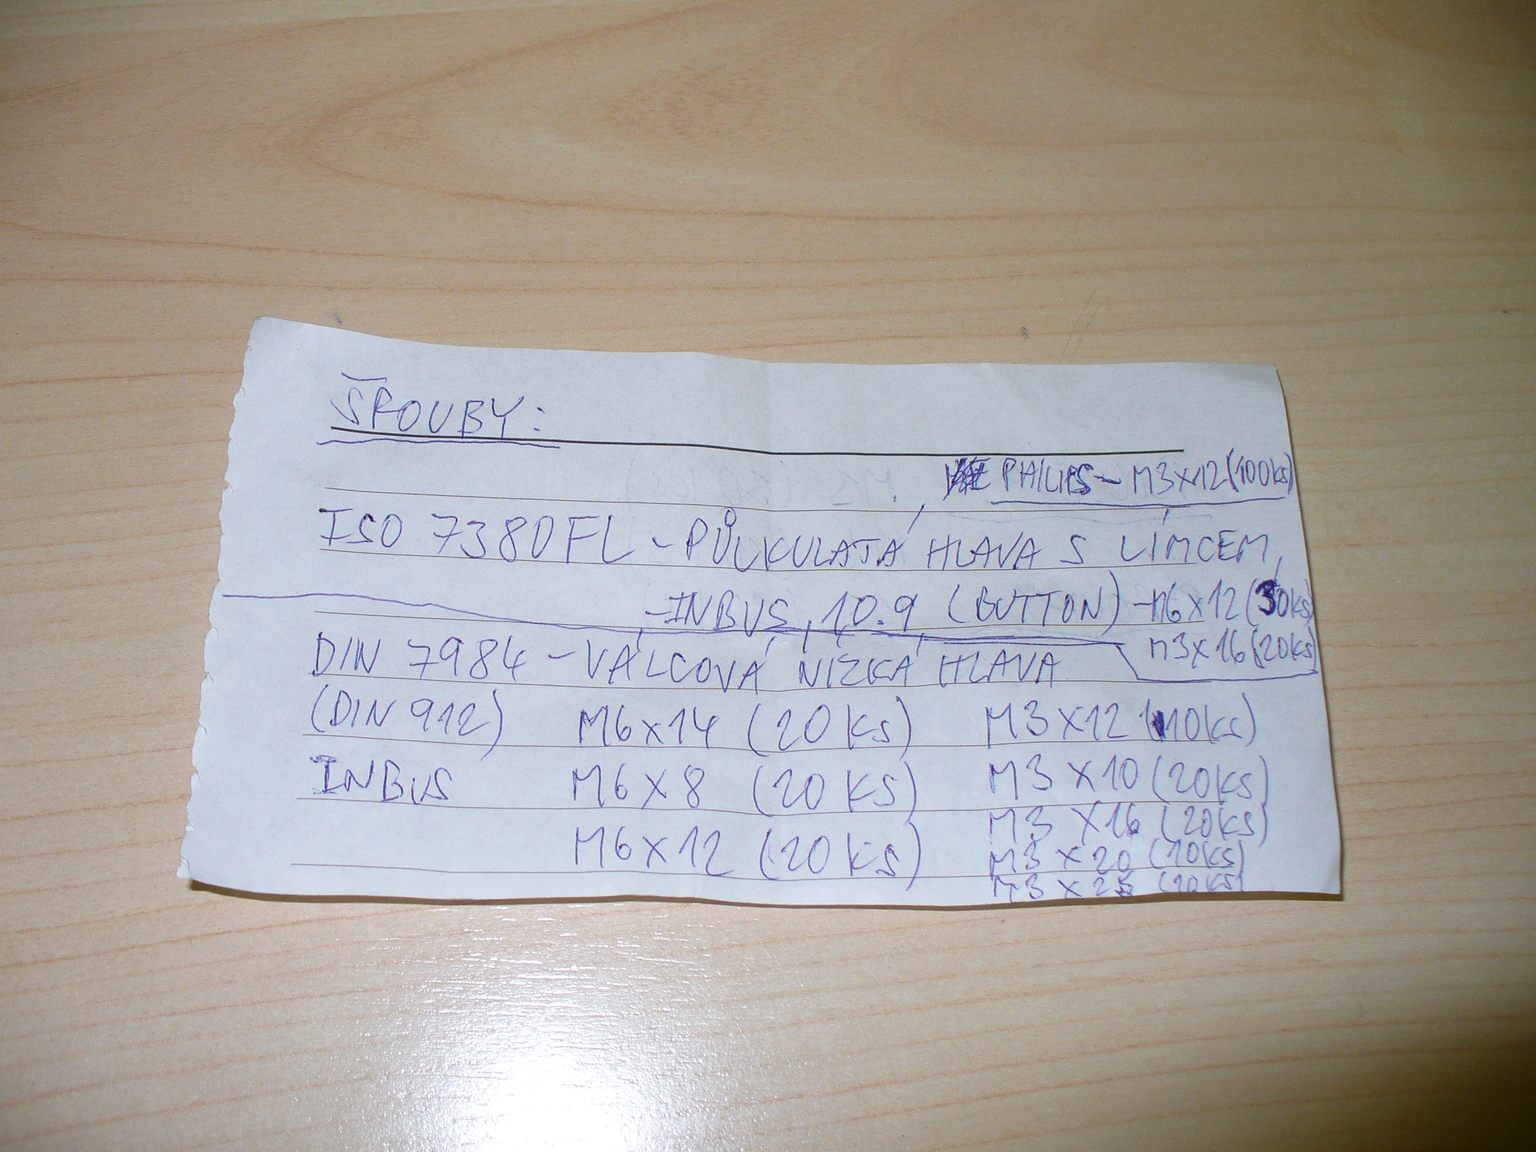 ŠROUBY:
PHILIPS - M3x12 (100ks)
ISO 7380FL - PŮLKULATÁ HLAVA S LÍMCEM,
- INBUS, 10.9 (BUTTON) - M6x12 (30ks)
M3x16 (20ks)
DIN 7984 - VÁLCOVÁ NÍZKÁ HLAVA
(DIN 912) M6x14 (20ks) M3x12 (10ks)
INBUS M6x8 (20ks) M3x10 (20ks)
M3x16 (20ks)
M6x12 (20ks) M3x20 (10ks)
M3x25 (10ks)